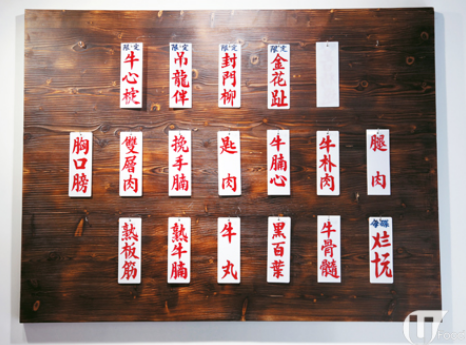 限定
牛心椗
限定
吊龍伴
限定
封門柳
限定
金花趾
胸口膀
雙層肉
挽手腩
匙肉
牛腩心
牛朴肉
腿肉
熟板筋
熟牛腩
牛丸
黑百葉
牛骨髓